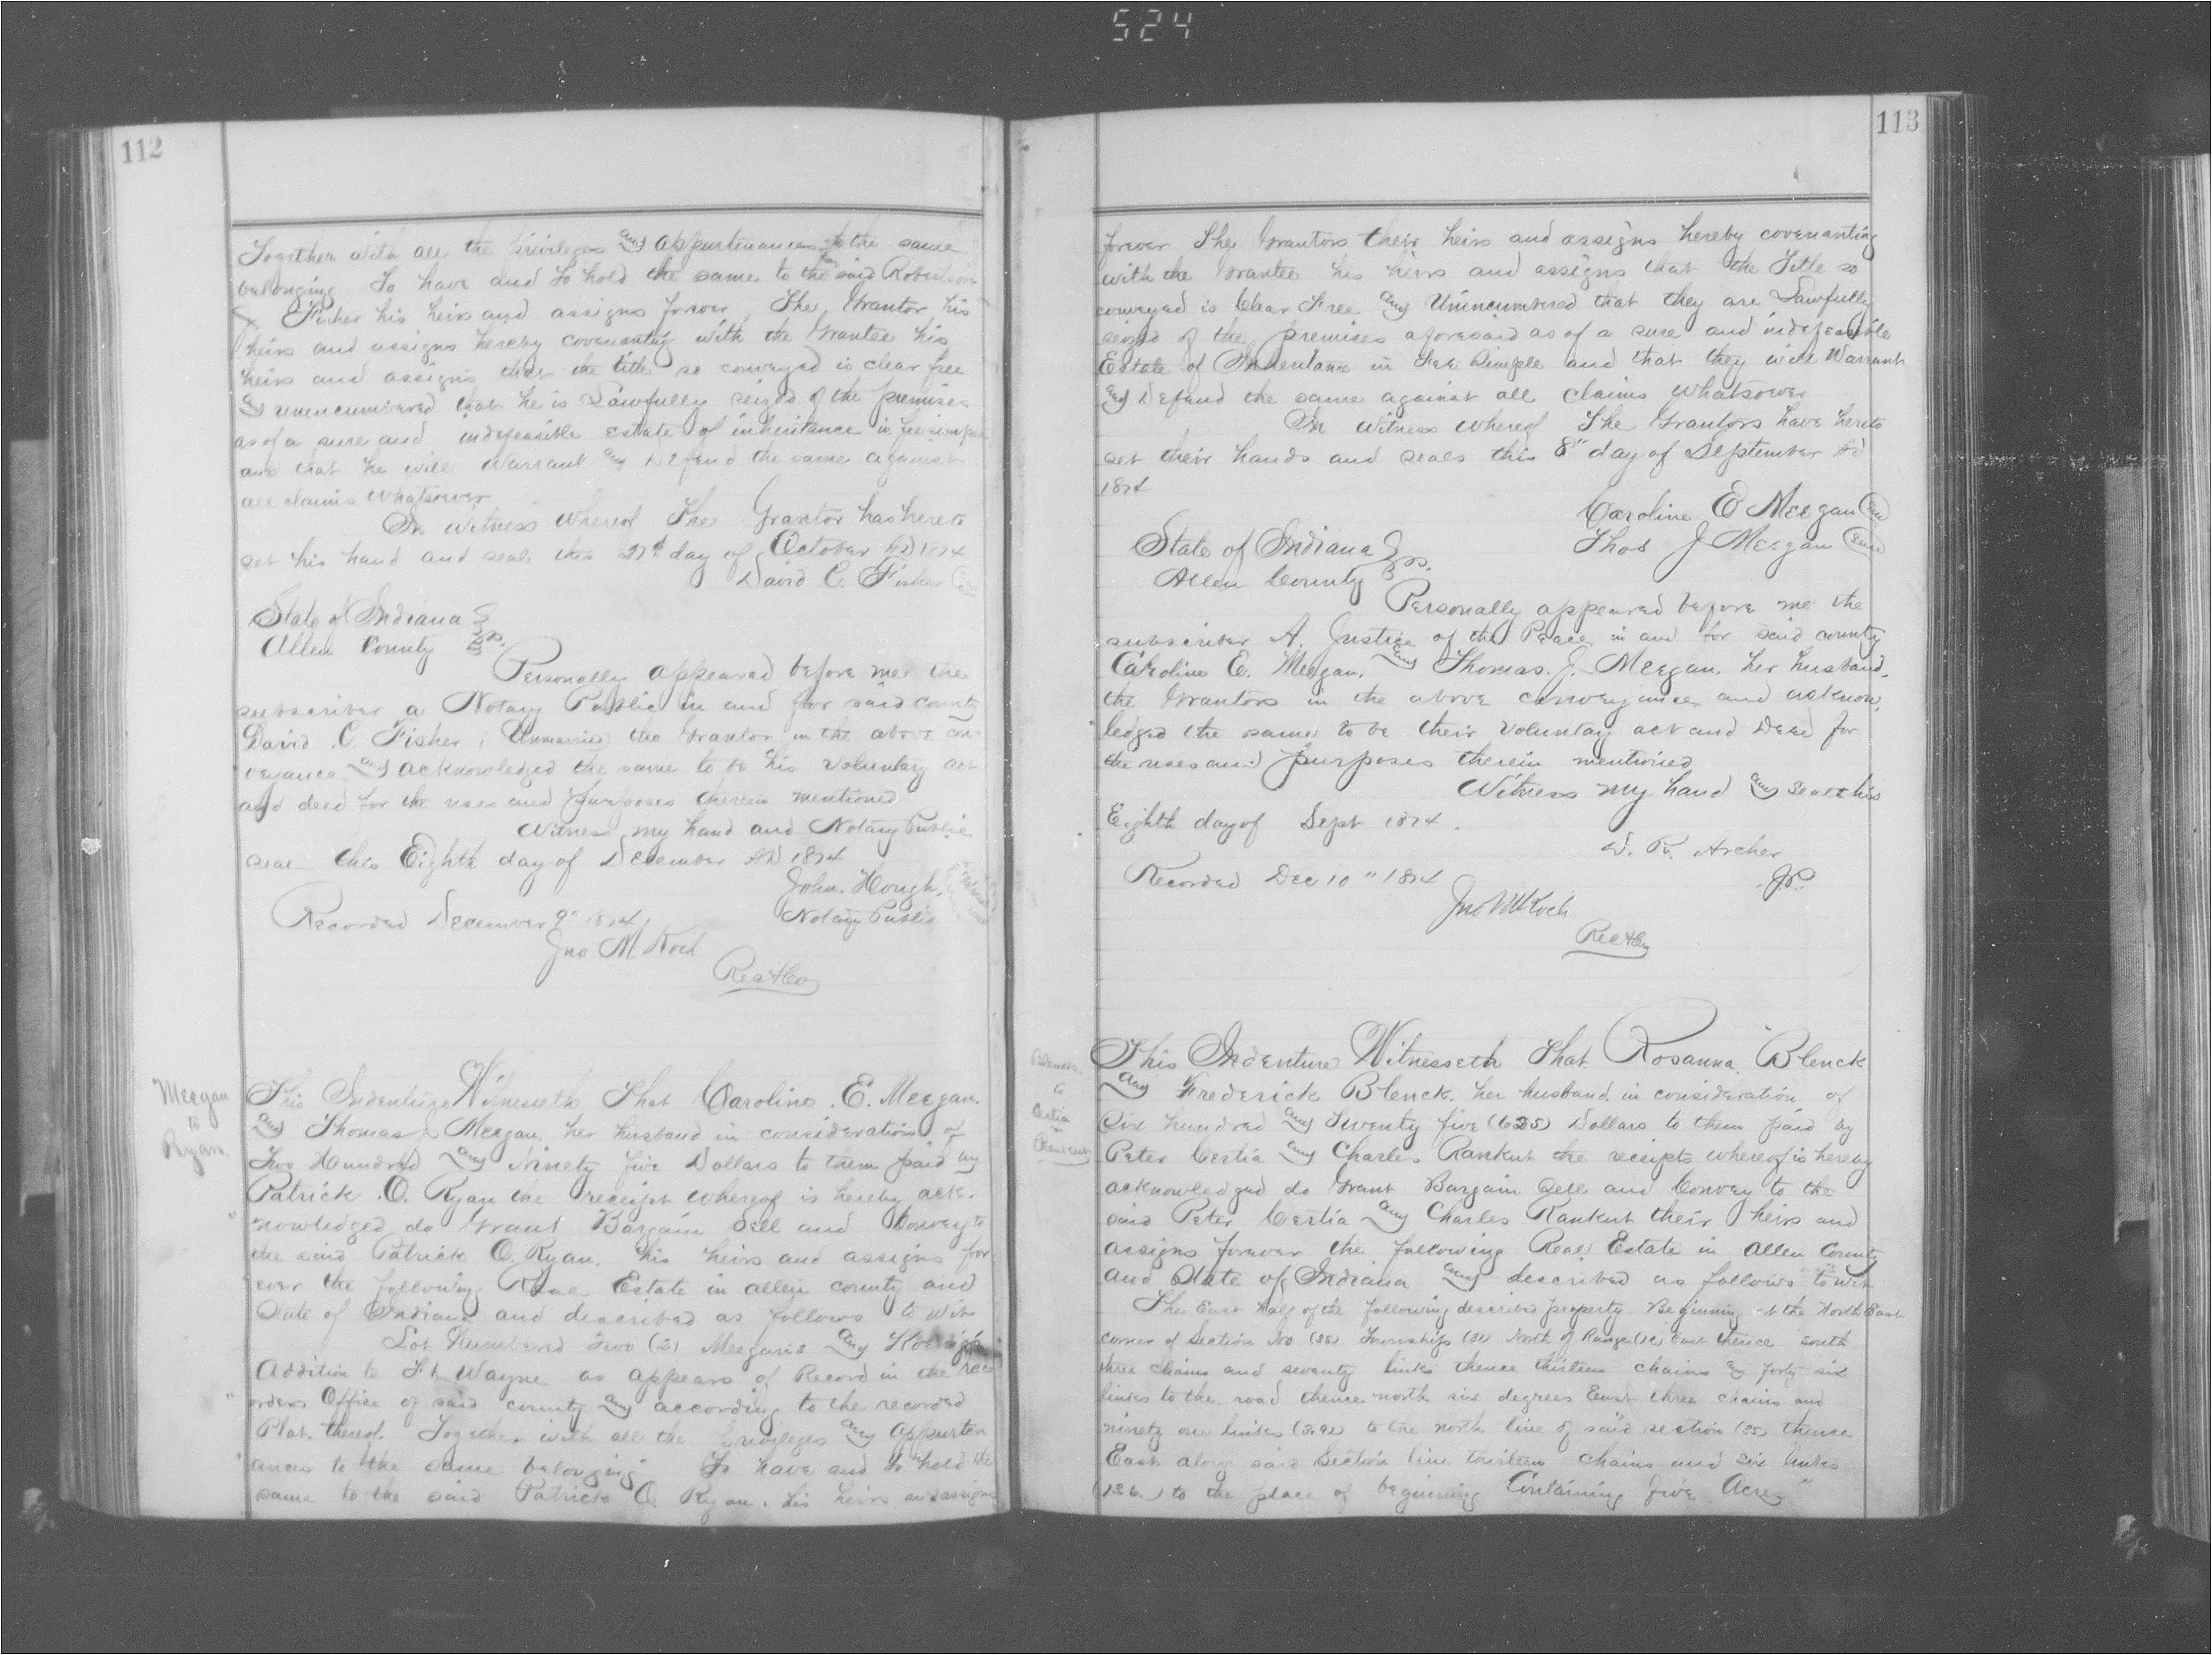 524
112
Together with all the privileges and appurtenances to the same
belonging To have and to hold the same to the said Robertson
J. Fisher his heirs and assigns forever The Grantor his
heirs and assigns hereby covenanting with the Grantee his
heirs and assigns that the title so conveyed is clear free
and unencumbered that he is Lawfully seized of the premises
as of a sure and indefeasible Estate of inheritance in fee simple
and that he will Warrant and Defend the same against
all claims whatsoever
In witness whereof The Grantor has hereto
set his hand and seal this day of October AD 1874
David C. Fisher
State of Indiana
Allen County ss.
Personally appeared before me the
subscriber a Notary Public in and for said county
David C. Fisher (Unmarried) the Grantor in the above con
veyance and acknowledged the same to be his voluntary act
and deed for the uses and purposes therein mentioned
Witness my hand and Notary Public
seal this Eighth day of December AD 1874
John Hough
Notary Public
Recorded December 9" 1874
Jno M. Koch
Rec
Meegan
to
Ryan
This Indenture Witnesseth That Caroline E. Meegan
and Thomas J Meegan her husband in consideration of
Two Hundred and Ninety five Dollars to them paid by
Patrick O. Ryan the receipt whereof is hereby ack
nowledged do Grant Bargain Sell and Convey to
the said Patrick O. Ryan his heirs and assigns for
ever the following Real Estate in allen county and
State of Indiana and described as follows to wit
Lot Numbered Two (2) Meegans and
Addition to Ft Wayne as appears of Record in the rec
orders Office of said county and according to the recorded
Plat thereof. Together with all the privileges and appurten
ances to the same belonging To have and to hold the
same to the said Patrick O. Ryan his heirs and assigns
113
forever The Grantors their heirs and assigns hereby covenanting
with the Grantee his heirs and assigns that the Title so
conveyed is Clear Free and Unincumbered that they are Lawfully
seized of the premises aforesaid as of a sure and indefeasible
Estate of Inheritance in Fee Simple and that they will Warrant
and Defend the same against all claims whatsoever
In witness whereof The Grantors have hereto
set their hands and seals this 8" day of September Ad
1874
Caroline E Meegan Seal
Thos J Meegan Seal
State of Indiana
Allen County ss.
Personally appeared before me the
subscriber A Justice of the Peace in and for said county
Caroline E. Meegan and Thomas J. Meegan her husband
the Grantors in the above conveyance and acknow
ledged the same to be their voluntay act and Deed for
the uses and purposes therein mentioned
Witness my hand and seal this
Eighth day of Sept 1874.
W. R. Archer
J.P.
Recorded Dec 10" 1874
Jno M Koch
Rec
Blenck
to
Certia
+
Rankut
This Indenture Witnesseth That Rosanna Blenck
and Frederick Blenck her husband in consideration of
Six hundred and Twenty five (625) Dollars to them paid by
Peter Certia and Charles Rankut the receipts whereof is hereby
acknowledged do Grant Bargain Sell and Convey to the
said Peter Certia and Charles Rankut their heirs and
assigns forever the following Real Estate in Allen County
and State of Indiana and described as follows to wit
The East half of the following described property Beginning at the North East
corner of Section No (35) Township (31) North of Range East thence south
three chains and seventy links thence thirteen chains and forty six
links to the road thence north six degrees East three chains and
ninety one links (3.91) to the north line of said section (35) thence
East along said Section line thirteen chains and six links
(13.6.) to the place of beginning Containing five Acres"